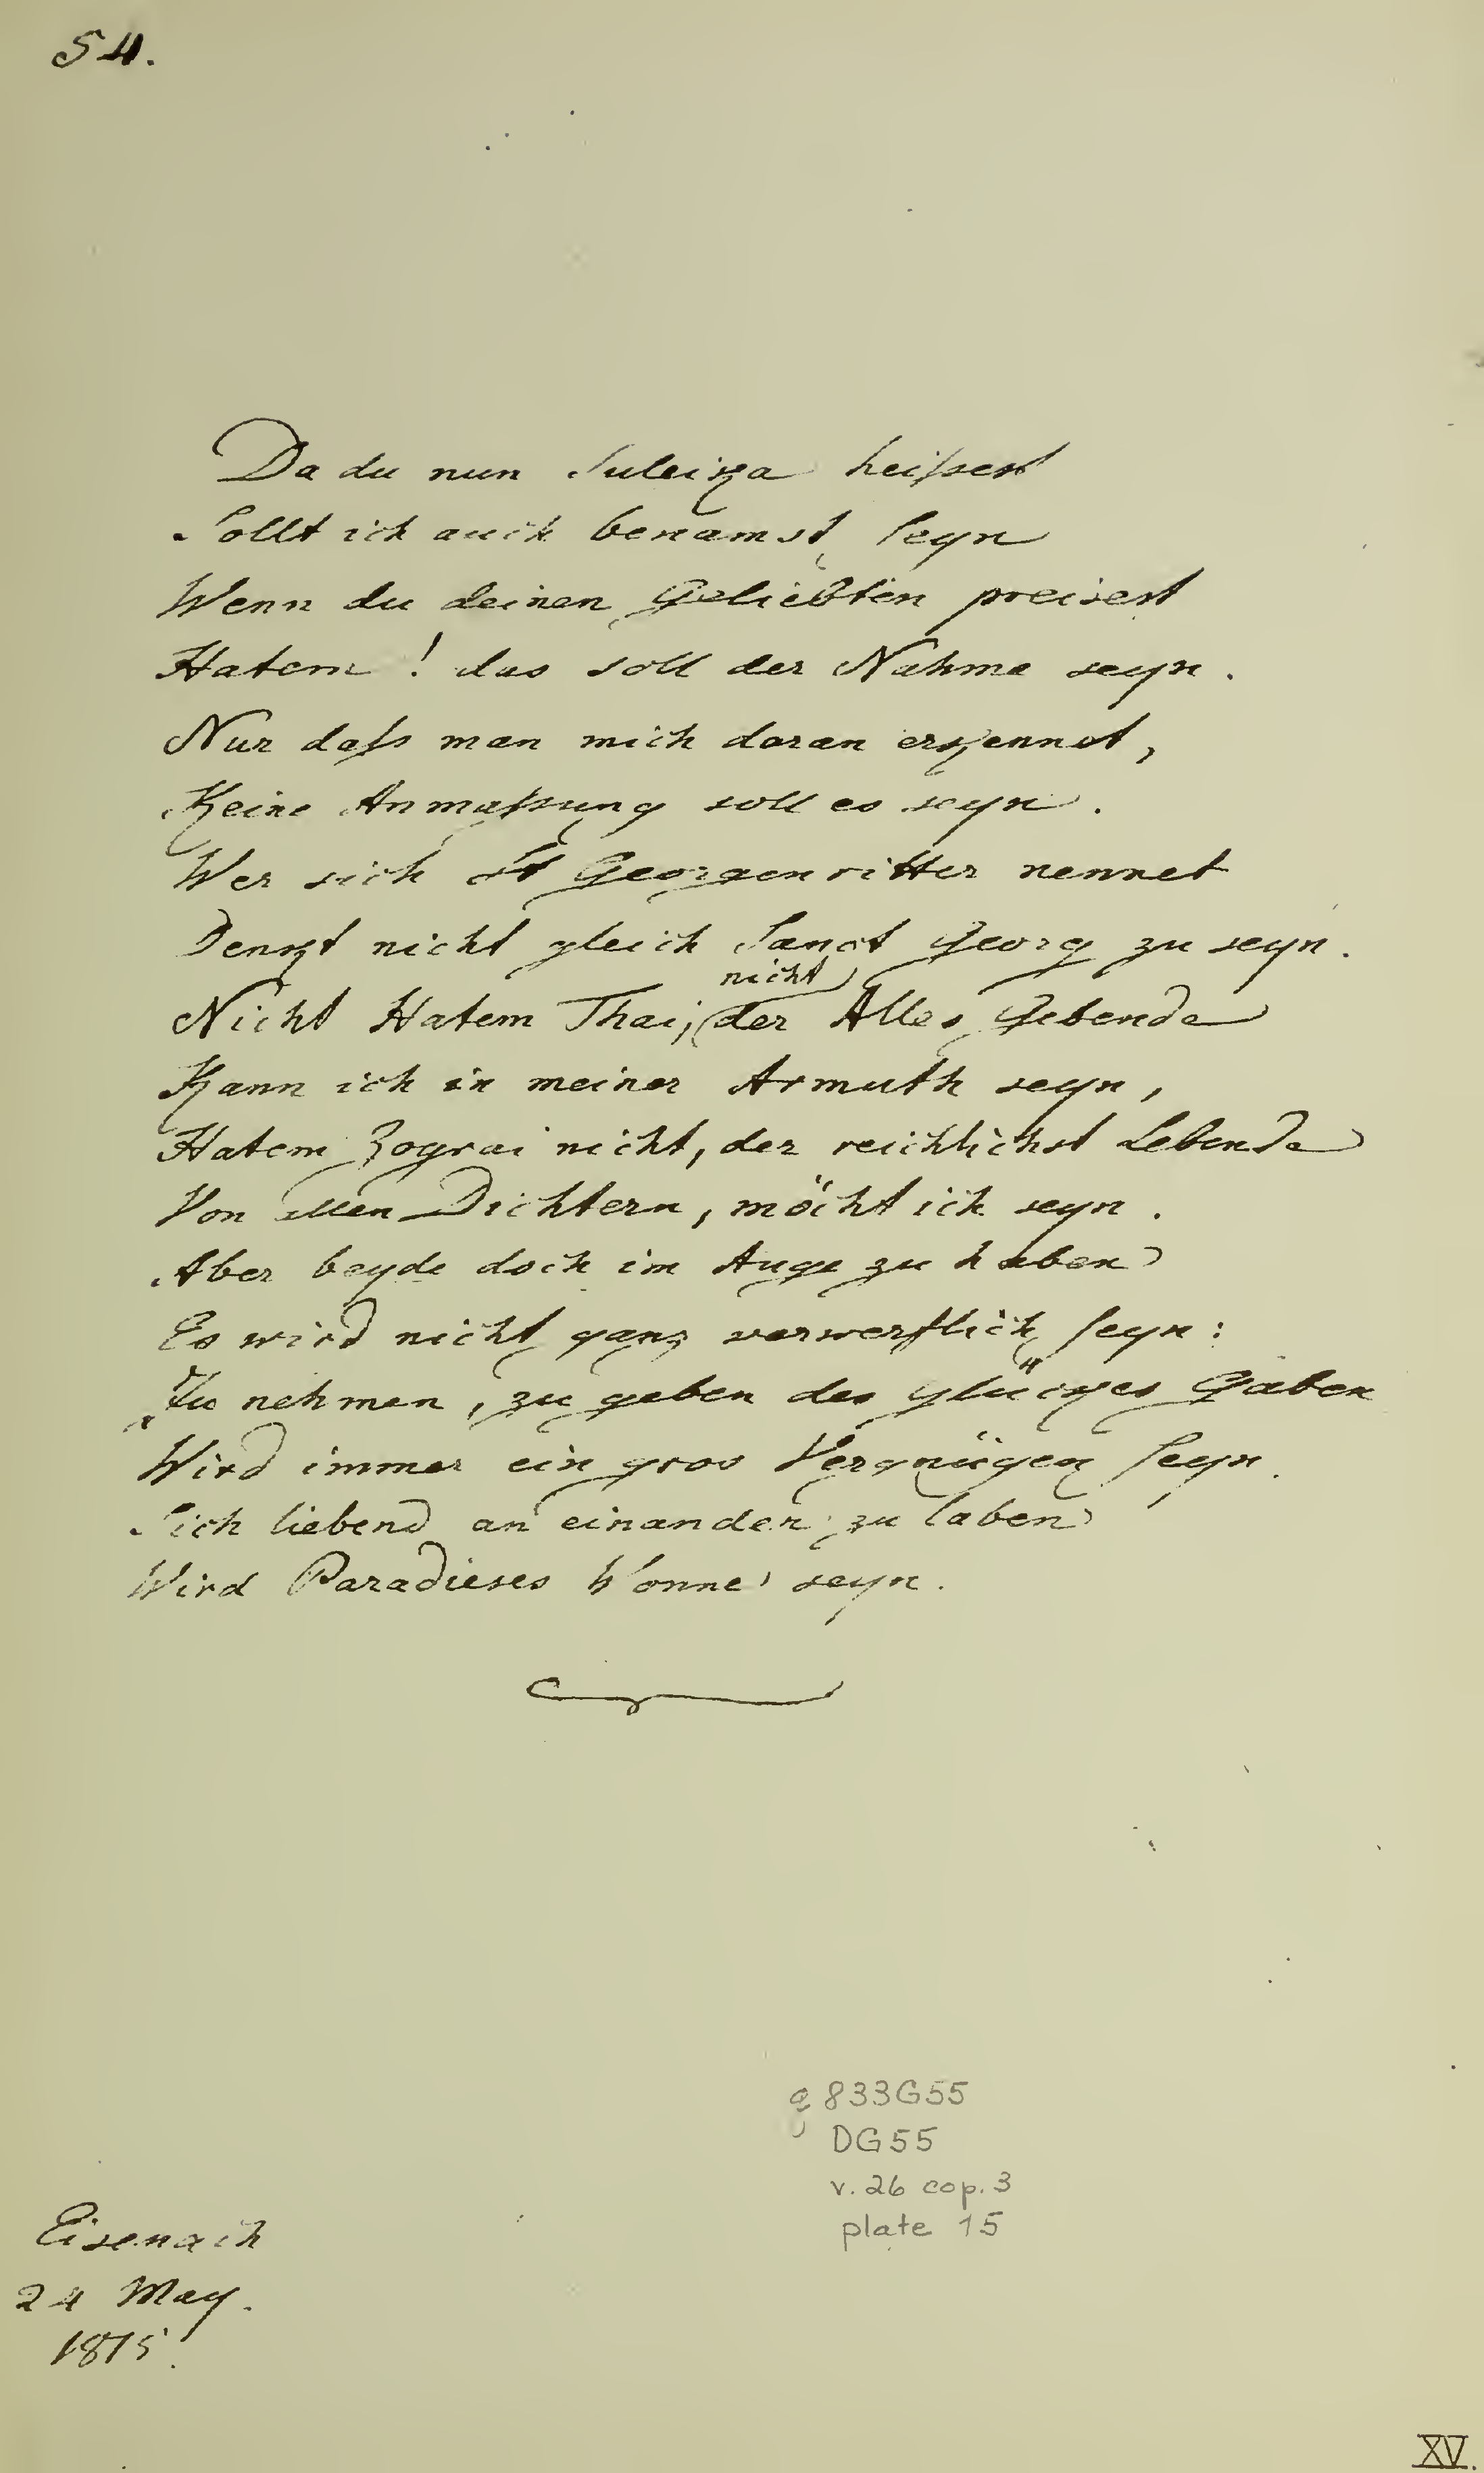 54.
Da du nun Suleika heissest
Sollt ich auch benamst seyn
Wenn du deinen Geliebten preisest
Hatem! das soll der Nahme seyn.
Nur dass man mich daran erkennet,
Keine Anmassung soll es seyn.
Wer sich St Georgenritter nennet
Denkt nicht gleich Sanct Georg zu seyn.
nicht
Nicht Hatem Thai, der Alles Gebende
Kann ich in meiner Armuth seyn,
Hatem Zograi nicht, der reichlichst Lebende
Von allen Dichtern, möcht ich seyn.
Aber beyde doch im Auge zu haben
Es wird nicht ganz verwerflich seyn:
Zu nehmen, zu geben des Glückes Gaben
Wird immer ein gros Vergnügen seyn.
Sich liebend an einander zu laben
Wird Paradieses Wonne seyn.
q833G55
DG55
v. 26 cop. 3
plate 15
Eisenach
24 May.
1815.
XV.